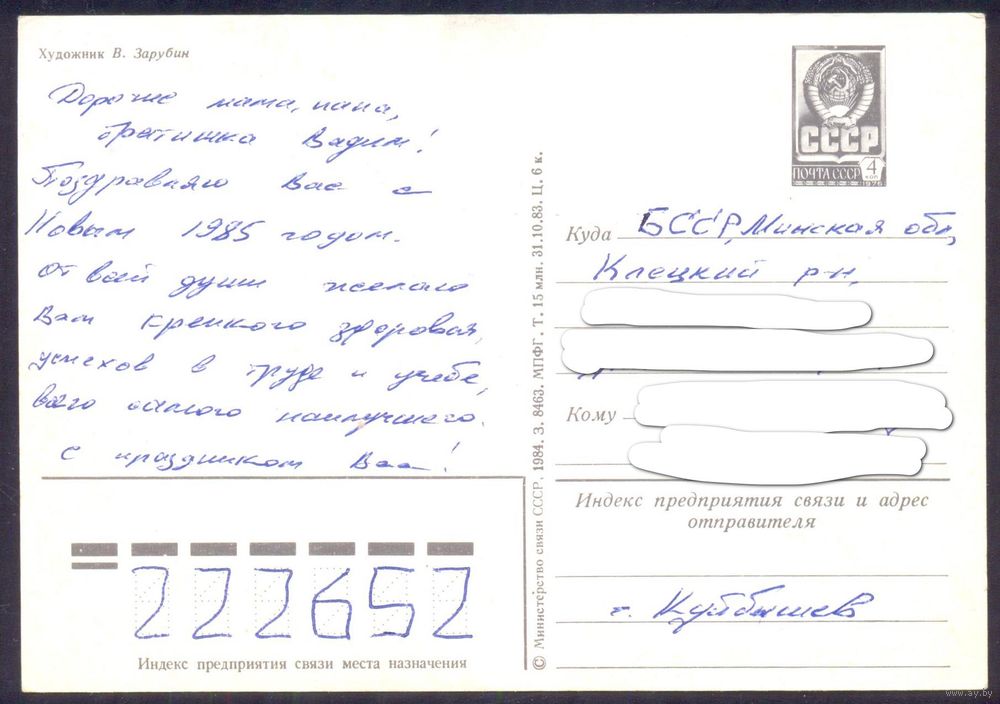 Художник В. Зарубин
Дорогие мама, папа,
братишка Вадим!
Поздравляю Вас с
Новым 1985 годом.
От всей души желаю
Вам крепкого здоровья,
успехов в труде и учебе,
всего самого наилучшего.
С праздником Вас!
СССР
ПОЧТА СССР
4
КОП
1976
Куда БССР, Минская обл,
Клецкий р-н,
Кому
Индекс предприятия связи и адрес
отправителя
г. Куйбышев
222652
Индекс предприятия связи места назначения
© Министерство связи СССР, 1984. З. 8463. МПФГ. Т. 15 млн. 31.10.83. Ц. 6 к.
www.ay.by